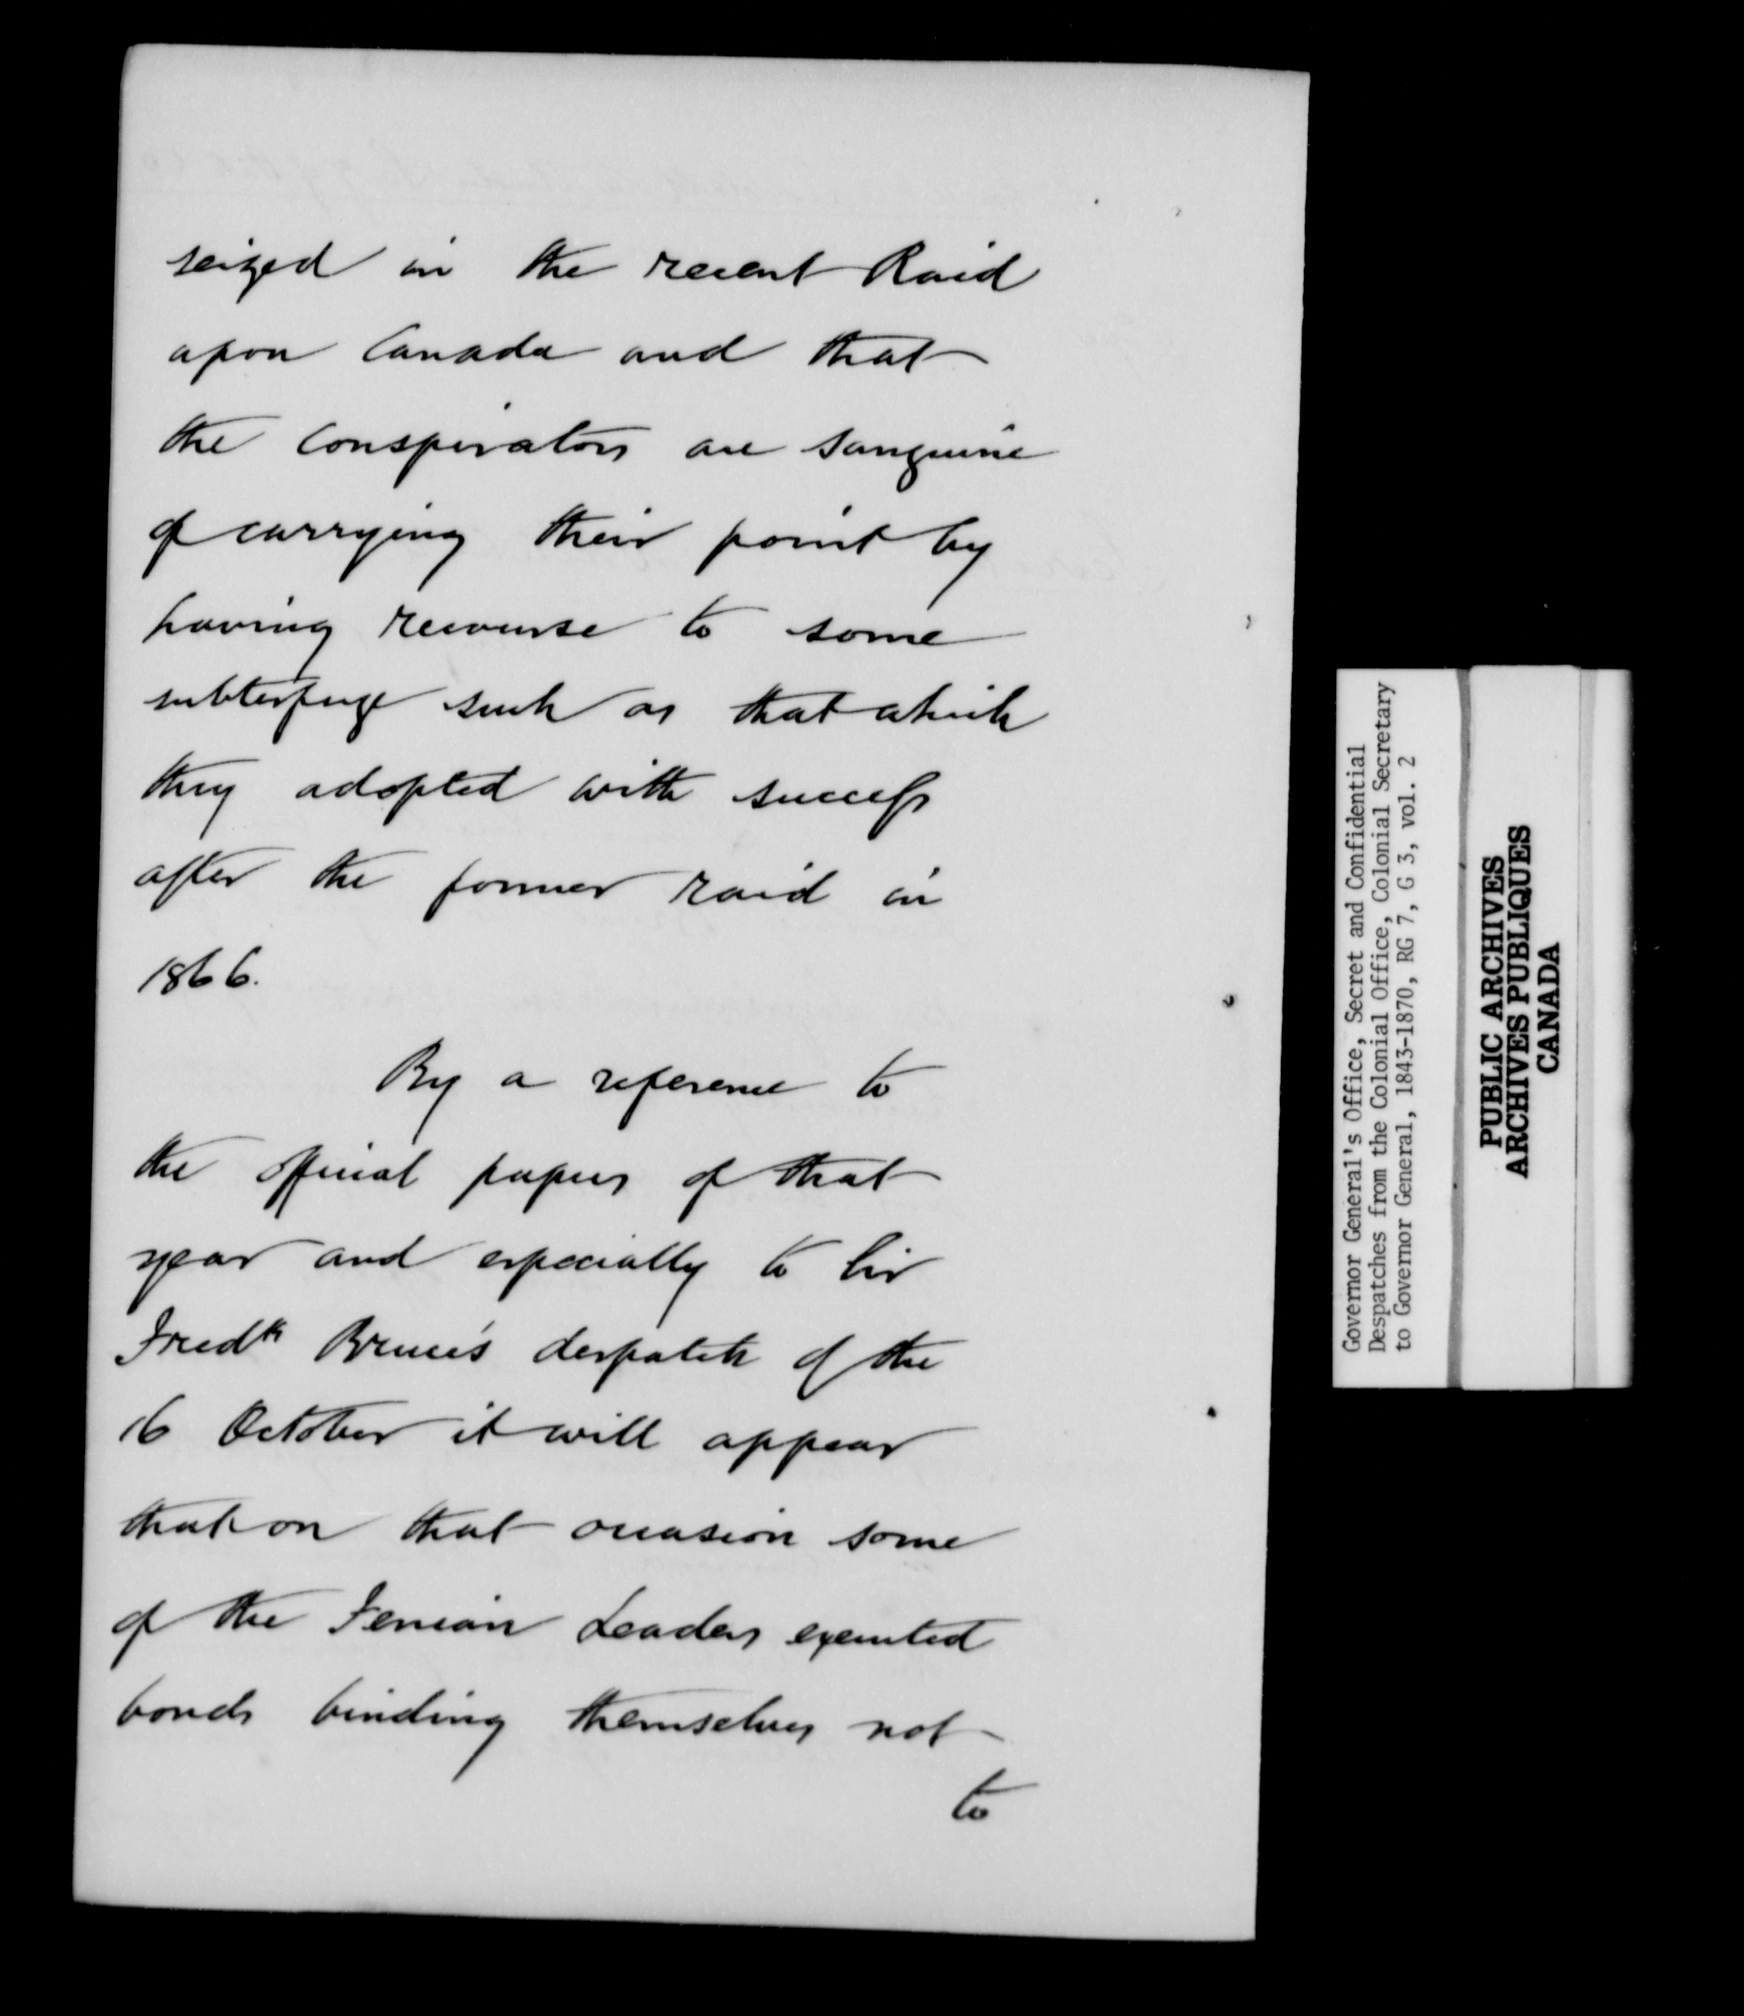 seized in the recent Raid
upon Canada and that
the Conspirators are sanguine
of carrying their point by
having recourse to some
subterfuge such as that which
they adopted with success
after the former raid in
1866.
By a reference to
the official papers of that
year and especially to Sir
Fredk Bruce's despatch of the
16 October it will appear
that on that occasion some
of the Fenian Leaders executed
bonds binding themselves not
to
Governor General's Office, Secret and Confidential
Despatches from the Colonial Office, Colonial Secretary
to Governor General, 1843-1870, RG 7, G 3, vol. 2
PUBLIC ARCHIVES
ARCHIVES PUBLIQUES
CANADA